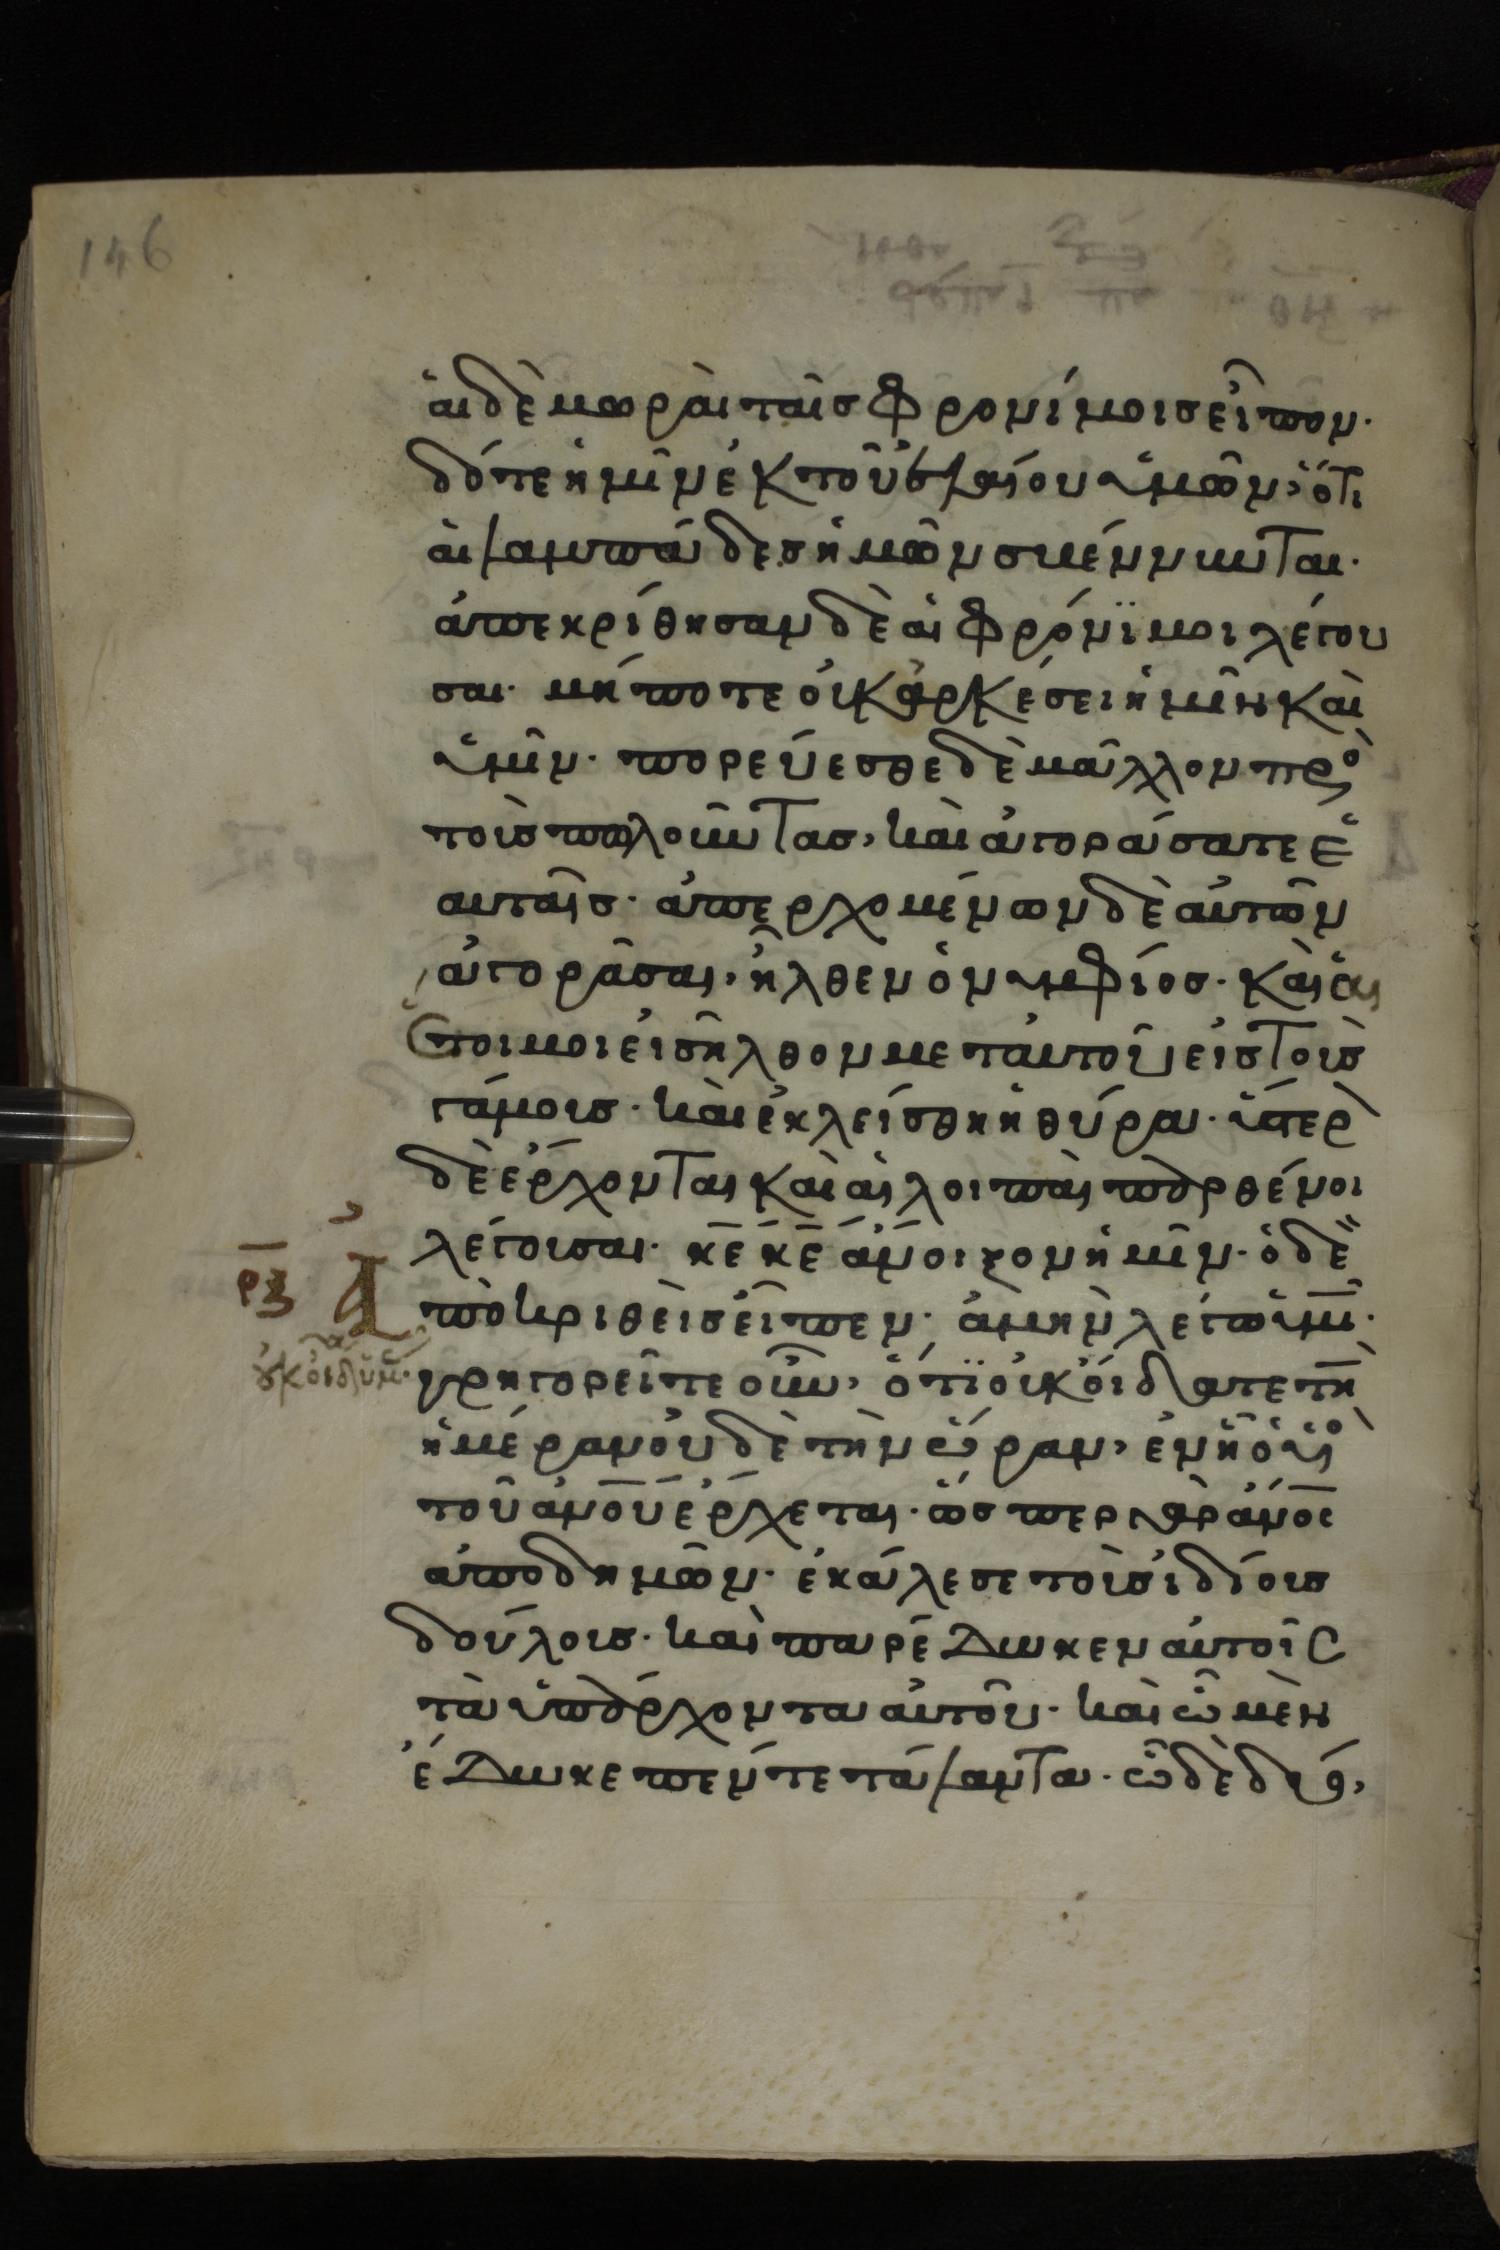 146
αἱ δὲ μωραὶ ταῖς φρονίμοις εἶπον·
δότε ἡμῖν ἐκ τοῦ ἐλαίου ὑμῶν, ὅτι
αἱ λαμπάδες ἡμῶν σβέννυνται·
ἀπεκρίθησαν δὲ αἱ φρόνϊμοι λέγου
σαι· μήποτε οὐκ ἀρκέσει ἡμῖν καὶ
ὑμῖν· πορεύεσθε δὲ μᾶλλον πρὸς
τοὺς πωλοῦντας, καὶ ἀγοράσατε ἑ
αυταῖς· ἀπερχομένων δὲ αὐτῶν
ἀγορᾶσαι, ἦλθεν ὁ νυμφίος· καὶ αἱ
ἕτοιμοι εἰσῆλθον μετ αὐτοῦ εἰς τοὺς
γάμους· καὶ ἐκλείσθη ἡ θύρα· ὕστερον
δὲ ἔρχονται καὶ αἱ λοιπαὶ παρθένοι
λέγουσαι· κε κε ἄνοιξον ἡμῖν· ὁ δὲ ἀ
ρξ
ποκριθεὶς εἶπεν· ἀμὴν λέγω ὑμῖν·
οὐκ οἶδα ὑμᾶς·
γρηγορεῖτε οὖν, ὅτϊ οὐκ οἴδατε τὴν
ἡμέραν οὐδὲ τὴν ὥραν, ἐν ἧ ὁ υἱὸς
τοῦ ανου ἔρχεται· ὥσπερ γὰρ ανος
ἀποδημῶν· ἐκάλεσε τοὺς ἰδίους
δούλους· καὶ παρέδωκεν αὐτοῖς
τὰ ὑπάρχοντα αὐτοῦ· καὶ ὧ μὲν
ἔδωκε πέντε τάλαντα· ὧ δὲ δύο,